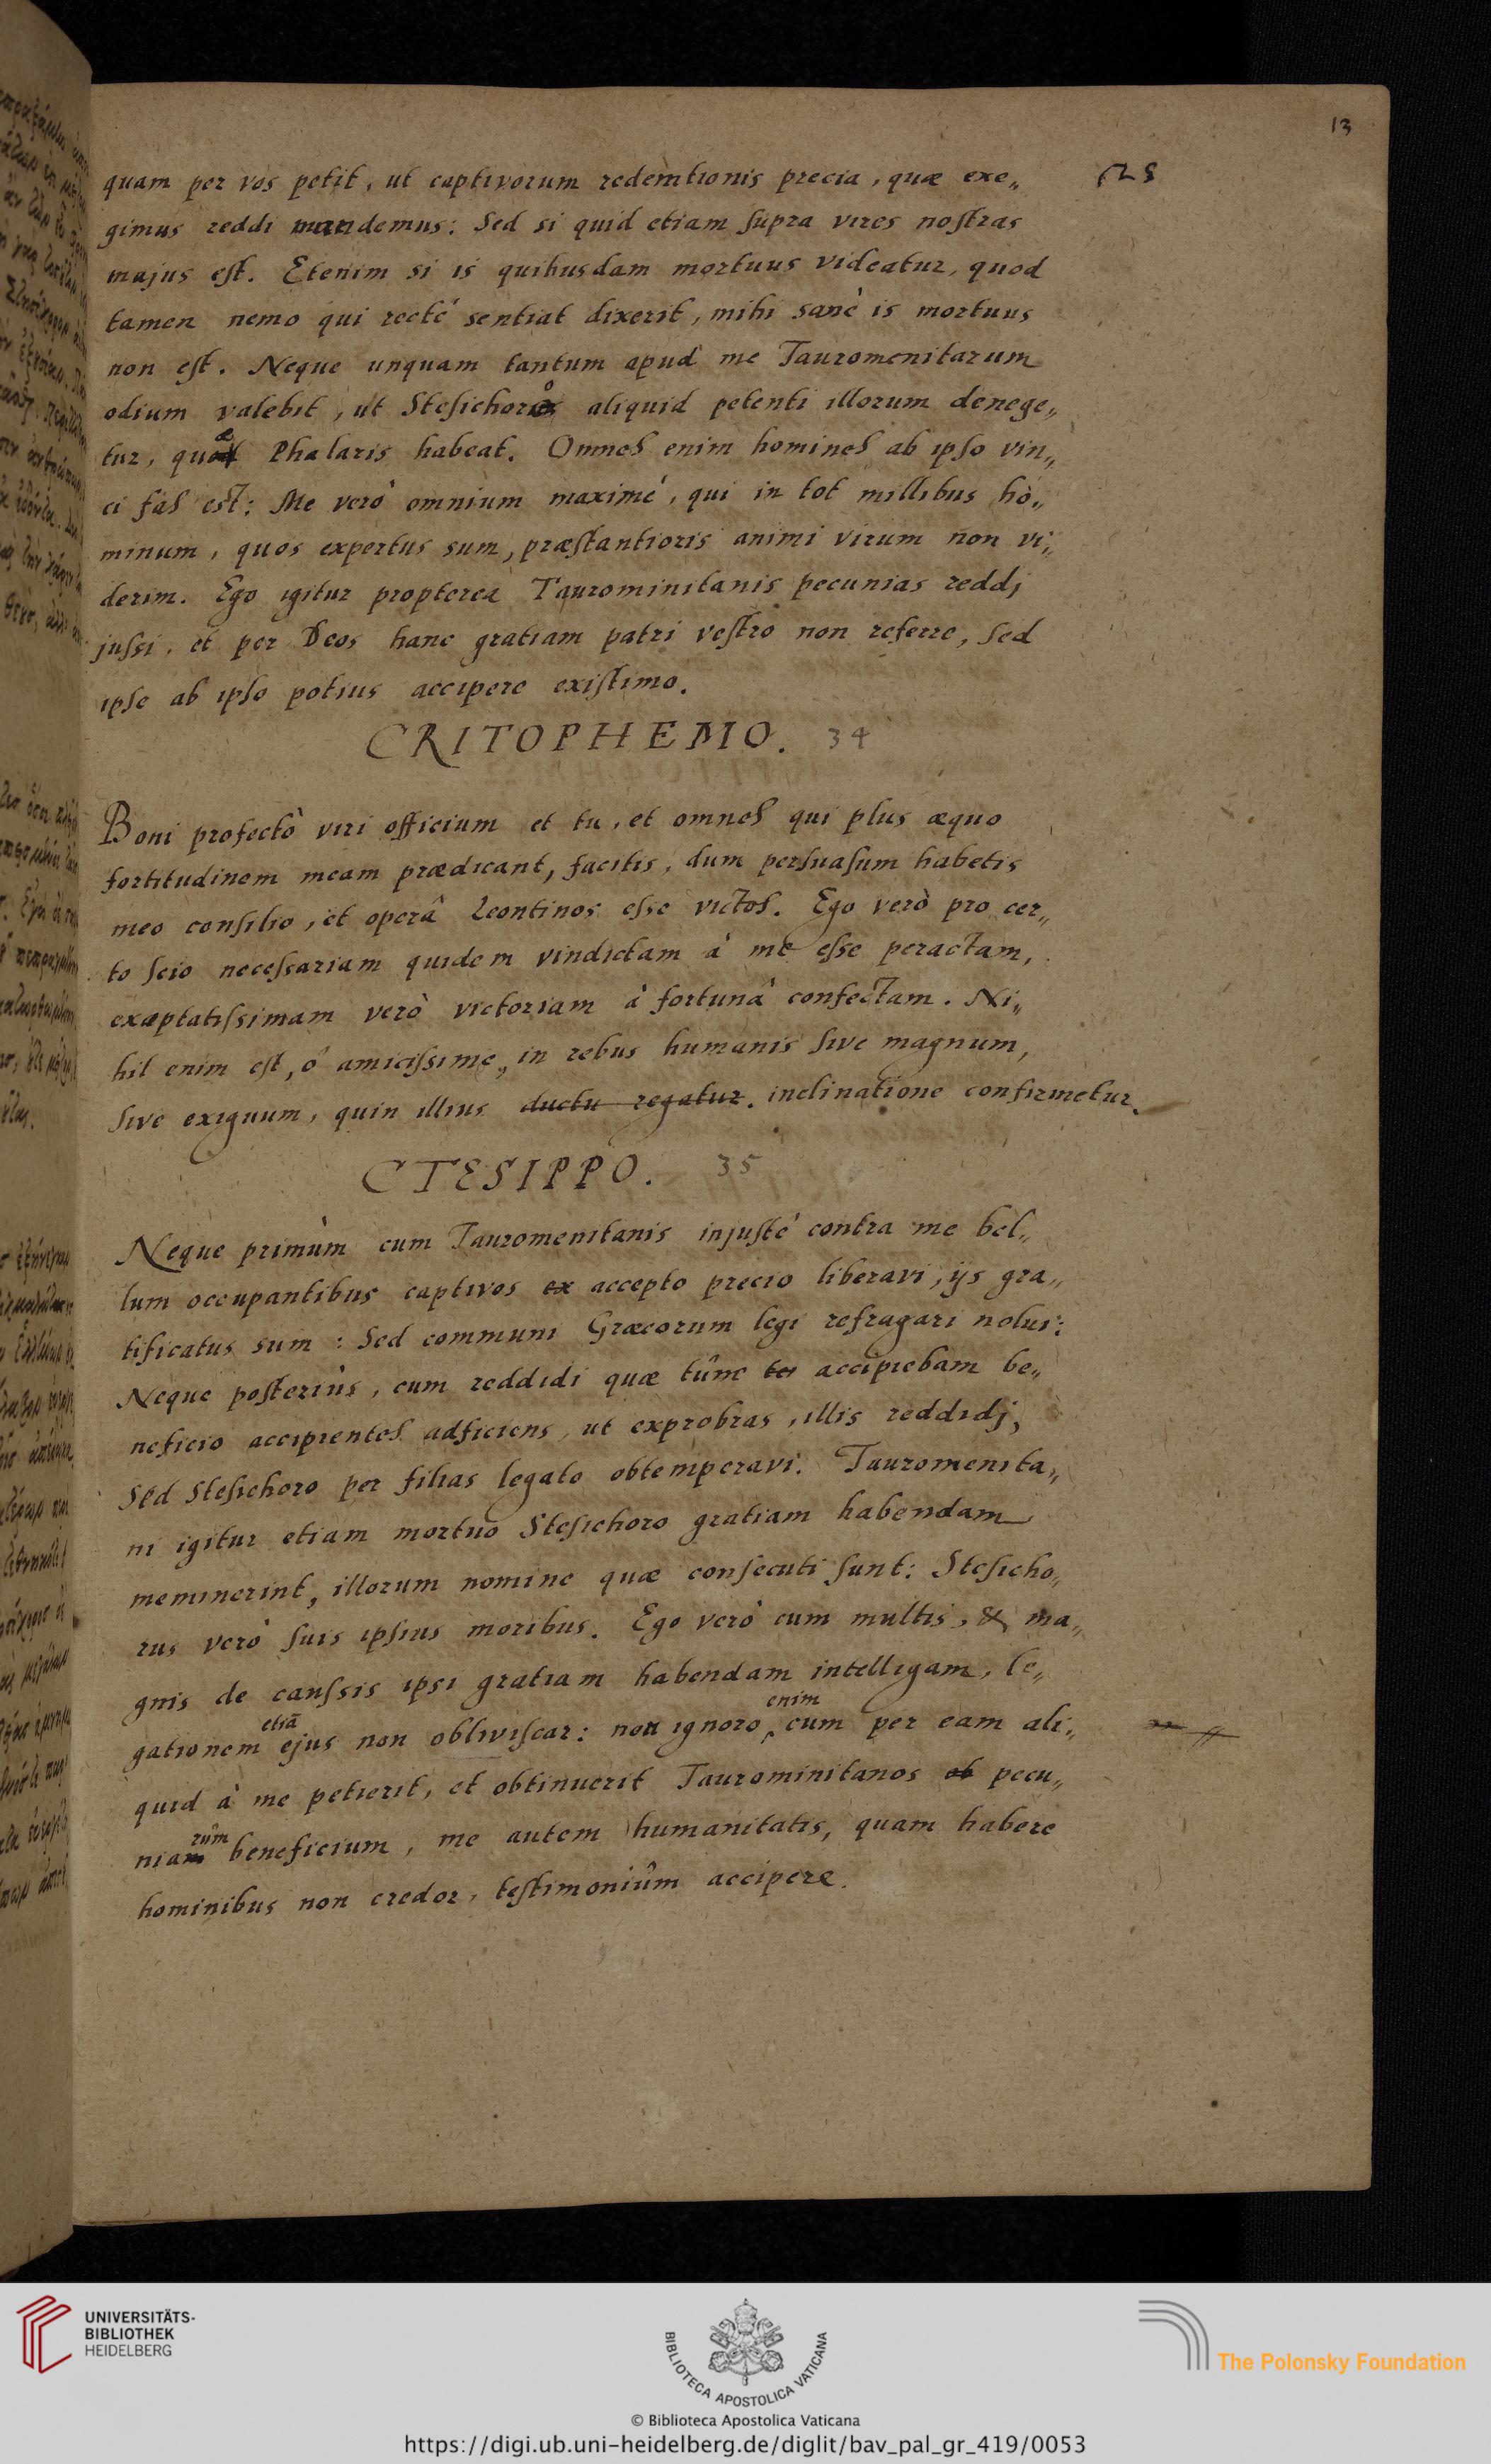 13
quam per vos petit, ut captivorum redemtionis precia, quæ exe„
gimus reddi mandemus: Sed si quid etiam supra vires nostras
majus est. Etenim si is quibusdam mortuus videatur, quod
tamen nemo qui recté sentiat dixerit, mihi sanè is mortuus
non est. Neque unquam tantum apud me Tauromenitarum
odium valebit, ut Stesichoro aliquid petenti illorum denege„
tur, quæ Phalaris habeat. Omnes enim homines ab ipso vin„
ci fas est: Me verò omnium maximé, qui in tot millibus ho„
minum, quos expertus sum, præstantioris animi virum non vi„
derim. Ego igitur propterea Taurominitanis pecunias reddj
jussi, et per Deos hanc gratiam patri vestro non referre, sed
ipse ab ipso potius accipere existimo.
CRITOPHEMO. 34
Boni profectò viri officium et tu, et omnes qui plus æquo
fortitudinem meam prædicant, facitis, dum persuasum habetis
meo consilio, et operâ Leontinos esse victos. Ego verò pro cer„
to scio necessariam quidem vindictam à me esse peractam,
exæptatissimam verò victoriam à fortunâ confectam. Ni„
hil enim est, ó amicissime, in rebus humanis sive magnum,
sive exiguum, quin illius ductu regatur. inclinatione confirmetur.
CTESIPPO. 35
Neque primùm cum Tauromenitanis injusté contra me bel„
lum occupantibus captivos ex accepto precio liberavi, ijs gra„
tificatus sum: Sed communi Græcorum legi refragari nolui:
Neque posteriùs, cum reddidi quæ tûnc accipiebam be„
neficio accipientes adficiens, ut exprobras, illis reddidj,
Sed Stesichoro per filias legato obtemperavi. Tauromenita„
ni igitur etiam mortuo Stesichoro gratiam habendam
meminerint, illorum nomine quæ consecuti sunt: Stesicho„
rus verò suis ipsius moribus. Ego verò cum multis, & ma„
gnis de caussis ipsi gratiam habendam intelligam, le„
gationem etiā ejus non obliviscar: non ignoro enim cum per eam ali„
quid à me petierit, et obtinuerit Taurominitanos ob pecu„
niarûm beneficium, me autem humanitatis, quam habere
hominibus non credor, testimoniûm accipere.
UNIVERSITÄTS-
BIBLIOTHEK
HEIDELBERG
BIBLIOTECA APOSTOLICA VATICANA
© Biblioteca Apostolica Vaticana
The Polonsky Foundation
https://digi.ub.uni-heidelberg.de/diglit/bav_pal_gr_419/0053